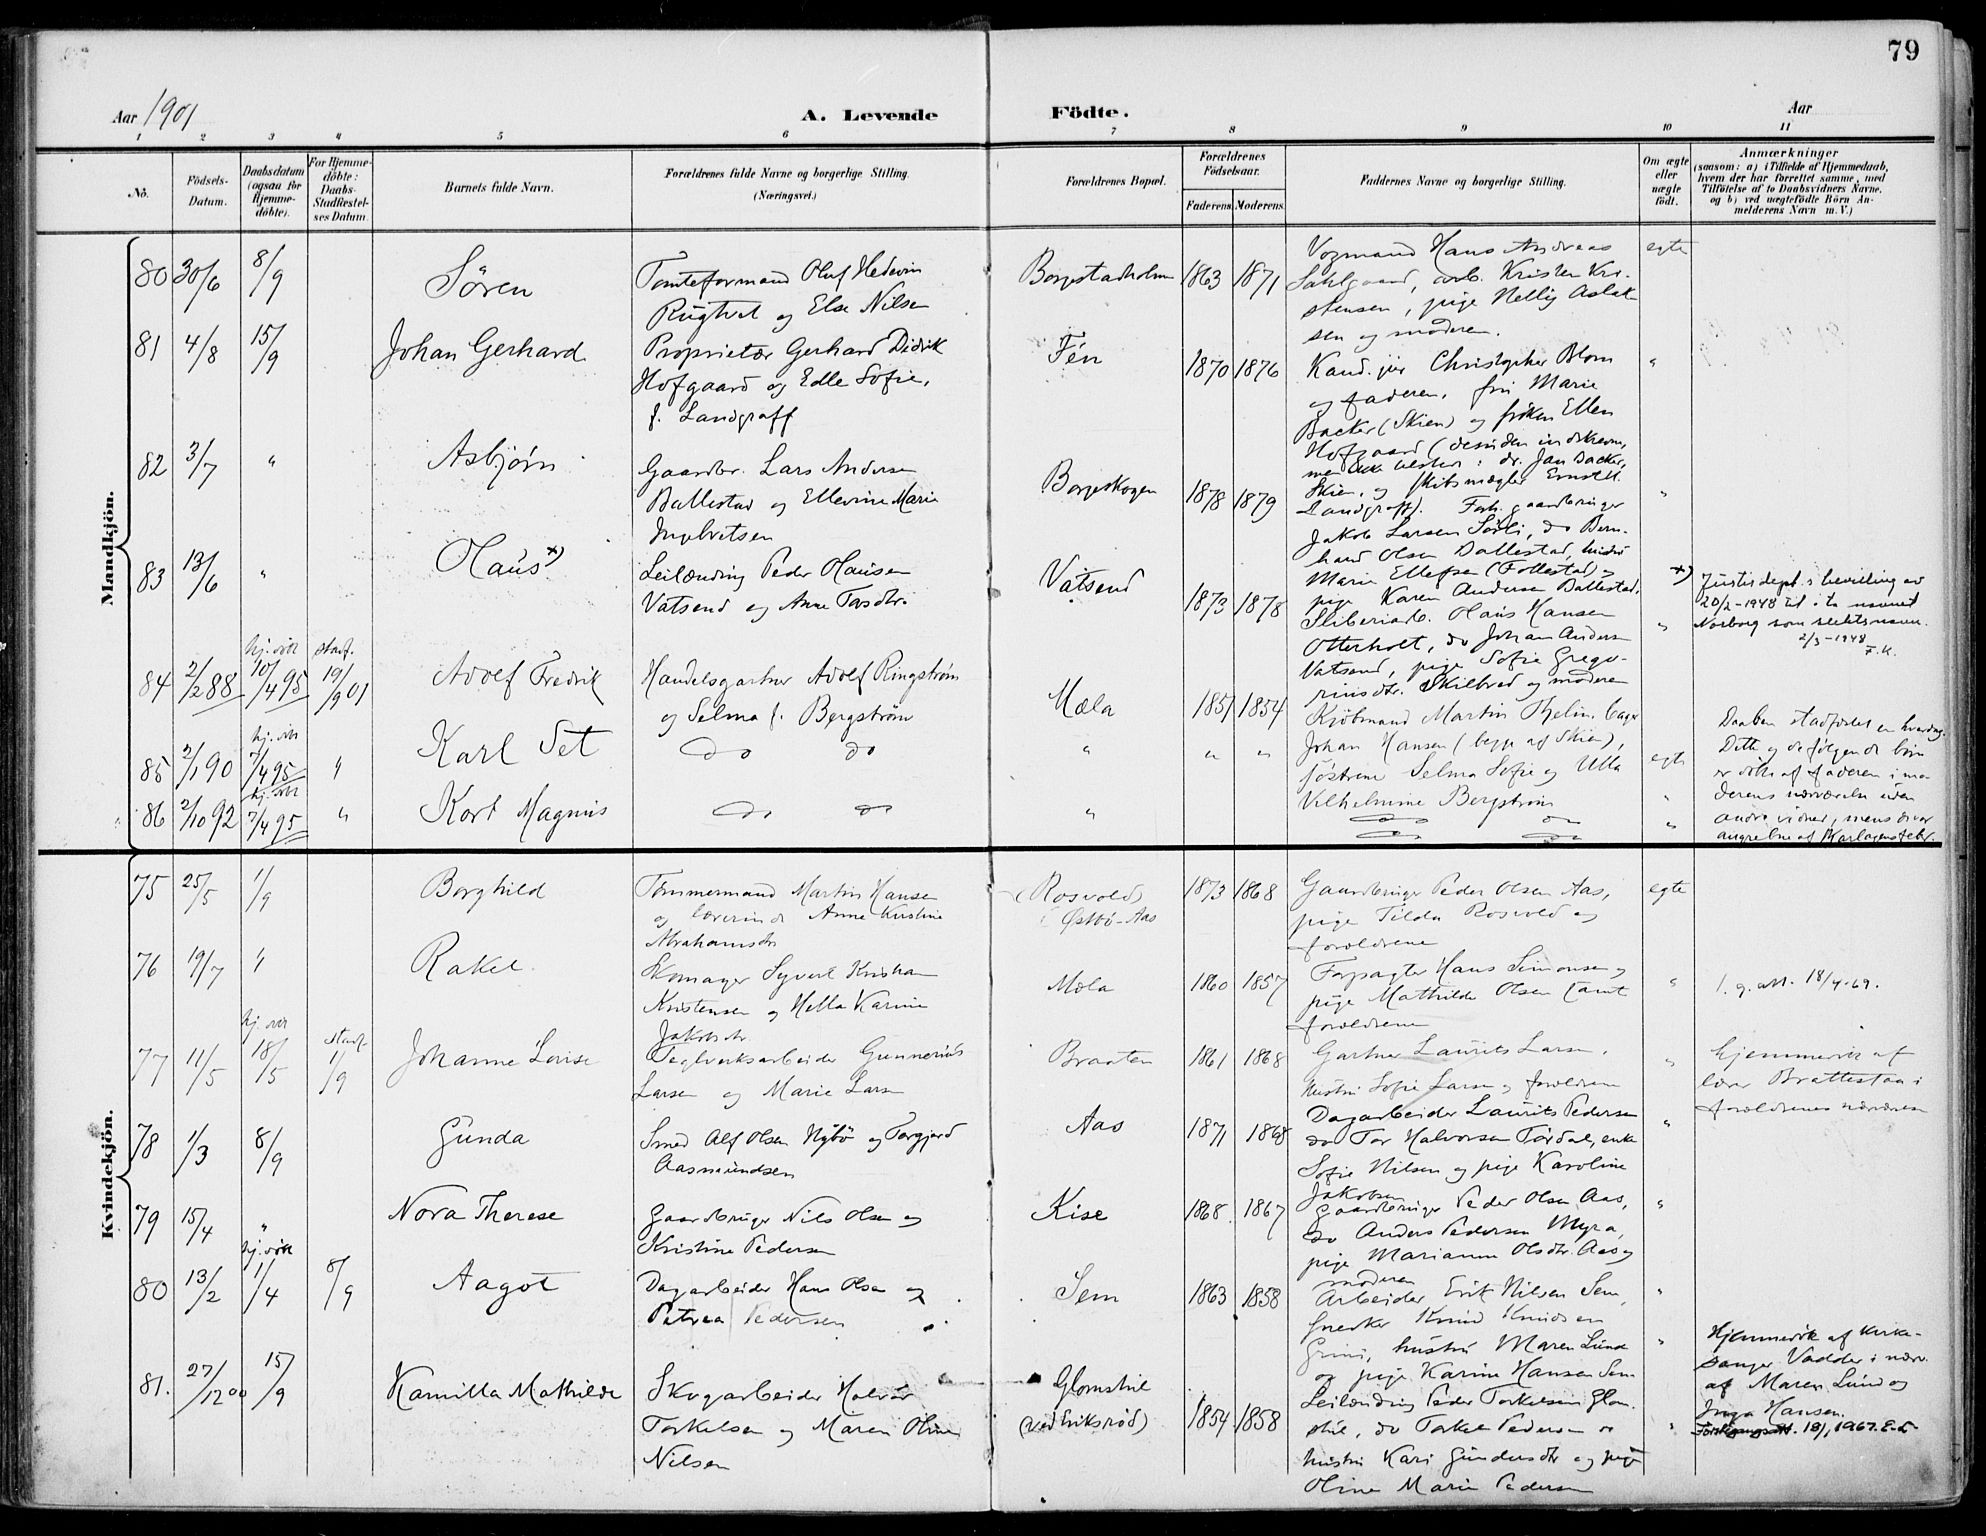 79
Aar 1901
A. Levende Födte.
Aar
1 2 3 4 5 6 7 8 9 10 11
Nô. Födsels-Datum. Daabsdatum (ogsaa for Hjemme-döbte). For Hjemme-döbte: Daabs-Stadfæstel-ses Datum. Barnets fulde Navn. Forældrenes fulde Navne og borgerlige Stilling. (Næringsvei.) Forældrenes Bopæl. Forældrenes Födselsaar. Faderens. Moderens. Faddernes Navne og borgerlige Stilling. Om ægte eller uægte födt. Anmærkninger (saasom: a) i Tilfælde af Hjemmedaab, hvem der har forrettet samme, med Tilföielse af to Daabsvidners Navne, og b) ved uægtefödte Börn An-melderens Navn m. V.)
Mandkjön.
80 30/6 8/9 Sören
Tomteformand Oluf Hedevin
Rugtvet og Else Nilsen
Borgestadholmen 1863 1871
Vogmand Hans Andreas
arb. Kristen Kri-
stensen, pige Nelly Aslak-
sen og moderen.
egte
81 4/8 15/9 Johan Gerhard
Proprietær Gerhard Didrik
Hofgaard og Edle Sofie,
f. Landgraff
Fén 1870 1876
Kand. jur Christopher Blom
og faderen, fru Marie
Backer (Skien) og fröken Ellen
Hofgaard (desuden indskrevne,
men ikke tilsted: dr. Jan Backer,
Skien, og skibsmægler Ernst
Landgraff).
"
82 3/7 " Asbjørn
Gaardbr. Lars Andersen
Ballestad og Ellevine Marie
Ingebretsen
Borgeskogen 1878 1879
Forh. gaardbruger
Jakob Larsen Sörli, do Bern-
hard Olsen Ballestad, hustru
Marie Ellefsen (Follestad) og
pige Karen Andersen Ballestad.
"
83 13/6 " Olaus x)
Leilænding Peder Olausen
Vatsend og Anne Torsdtr.
Vatsend 1873 1878
Sliberiarb. Olaus Hansen
Otterholt, do Johan Andersen
Vatsend, pige Sofie Grego-
riusdtr. Skilbred og moderen
"
x) Justisdept.s bevilling av
20/2-1948 til å ta navnet
Norborg som slektsnavn.
2/3-1948
F.K.
84 2/2 88 hj. döbt 10/4 95 stadf. 19/9 01 Adolf Fredrik
Handelsgartner Adolf Ringström
og Selma f. Bergström
Mæla 1851 1854
Kjöbmand Martin Hjelm, bager
Johan Hansen (begge af Skien),
söstrene Selma Sofie og Ulla
Vilhelmine Bergström
85 2/1 90 hj. döbt 7/4 95 " Karl Set do do " " " egte
Daaben stadfæstet en hverdag.
Dette og de følgende børn
er döbt af faderen i mo-
derens nærværelse uden
andre vidner, mens de var
angrebne af skarlagensfeber.
86 2/10 92 hj. döbt 7/4 95 " Kort Magnus do do " do do "
Kvindekjön.
75 25/5 1/9 Borghild
Tømmermand Martin Hansen
og lærerinde Anne Kristine
Abrahamsdtr
(Rosvold)
i Østbö-Aas
1873 1868
Gaardbruger Peder Olsen Aas,
pige Tilda Rosvold og
forældrene
egte
76 19/7 " Rakel
Skomager Syvert Kristian
Kristensen og Hella Karine
Jakobsdtr
Mæla 1860 1857
Forpagter Hans Simonsen og
pige Mathilde Olsen samt
forældrene
"
l. g. att. 18/4-69.
77 11/5 hj. döbt 18/5 stadf. 1/9 Johanne Lovise
Teglverksarbeider Gunnerius
Larsen og Marie Larsen
Braaten 1861 1868
Gartner Laurits Larsen,
hustru Sofie Larsen og forældrene
"
hjemmedöbt af
lærer Brattestaa i
forældrenes nærværelse
78 1/3 8/9 Gunda
Smed Alf Olsen Nybö og Torgjerd
Aasmundsen
Aas 1871 1868
Dagarbeider Laurits Pedersen
do Tor Halvorsen Tördal, enke
Sofie Nilsen og pige Karoline
Jakobsen
"
79 15/4 " Nora Therese
Gaardbruger Nils Olsen og
Kristine Pedersen
Kise 1868 1867
Gaardbruger Peder Olsen Aas,
do Anders Pedersen Myra,
pige Marianne Olsdtr. Aas og
moderen
"
80 13/2 hj. döbt 1/4 8/9 Aagot
Dagarbeider Hans Olsen og
Petrea Pedersen
Sem 1863 1858
Arbeider Erik Nilsen Sem,
Snedker Knud Knudsen
Grini, hustru Maren Lund
og pige Karine Hansen Sem
"
Hjemmedöbt af kirke-
sanger Vadder i nærv.
af Maren Lund og
Inga Hansen.
81. 27/12 00 15/9 Kamilla Mathilde
Skogarbeider Halvor
Torkelsen og Maren Oline
Nilsen
Glomstil
(ved Eriksröd)
1854 1858
Leilænding Peder Torkelsen Glom-
stil, do Torkel Pedersen
hustru Kari Gundersdtr og pige
Oline Marie Pedersen
"
18/1 1967.